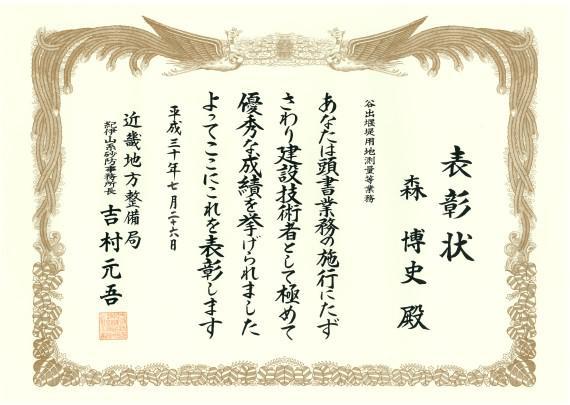 表彰状
森博史殿
谷出堰堤用地測量等業務
あなたは頭書業務の施行にたず
さわり建設技術者として極めて
優秀な成績を挙げられました
よってここにこれを表彰します
平成三十年七月二十六日
近畿地方整備局
紀伊山系砂防事務所長
吉村元吾